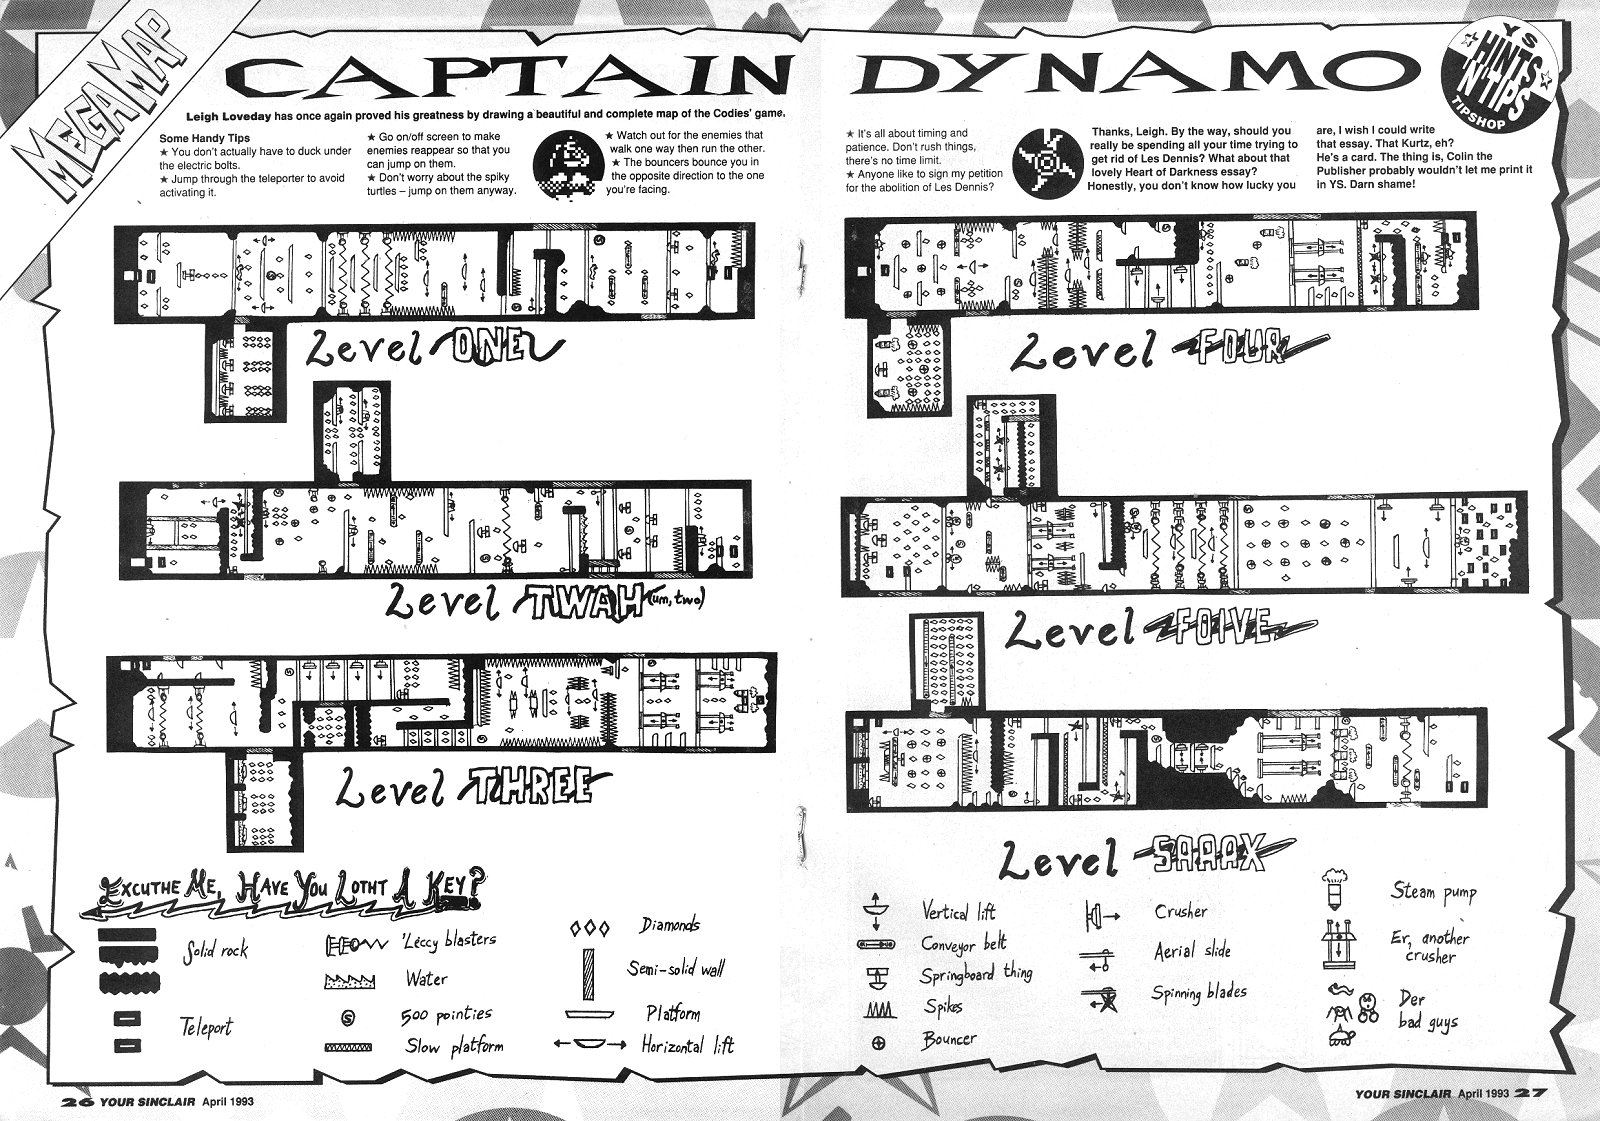 MEGAMAP
CAPTAIN DYNAMO
YS
HINTS
N' TIPS
TIPSHOP
Leigh Loveday has once again proved his greatness by drawing a beautiful and complete map of the Codies' game.
Some Handy Tips
★ You don't actually have to duck under
the electric bolts.
★ Jump through the teleporter to avoid
activating it.
★ Go on/off screen to make
enemies reappear so that you
can jump on them.
★ Don't worry about the spiky
turtles – jump on them anyway.
★ Watch out for the enemies that
walk one way then run the other.
★ The bouncers bounce you in
the opposite direction to the one
you're facing.
★ It's all about timing and
patience. Don't rush things,
there's no time limit.
★ Anyone like to sign my petition
for the abolition of Les Dennis?
Thanks, Leigh. By the way, should you
really be spending all your time trying to
get rid of Les Dennis? What about that
lovely Heart of Darkness essay?
Honestly, you don't know how lucky you
are, I wish I could write
that essay. That Kurtz, eh?
He's a card. The thing is, Colin the
Publisher probably wouldn't let me print it
in YS. Darn shame!
Level ONE
Level TWAH (um, two)
Level THREE
Level FOUR
Level FOIVE
Level SAAAX
EXCUTHE ME, HAVE YOU LOTHT A KEY?
Solid rock
Teleport
'Leccy blasters
Water
S
500 pointies
Slow platform
Diamonds
Semi-solid wall
Platform
Horizontal lift
Vertical lift
Conveyor belt
Springboard thing
Spikes
Bouncer
Crusher
Aerial slide
Spinning blades
Steam pump
Er, another
crusher
Der
bad guys
26 YOUR SINCLAIR April 1993
YOUR SINCLAIR April 1993 27